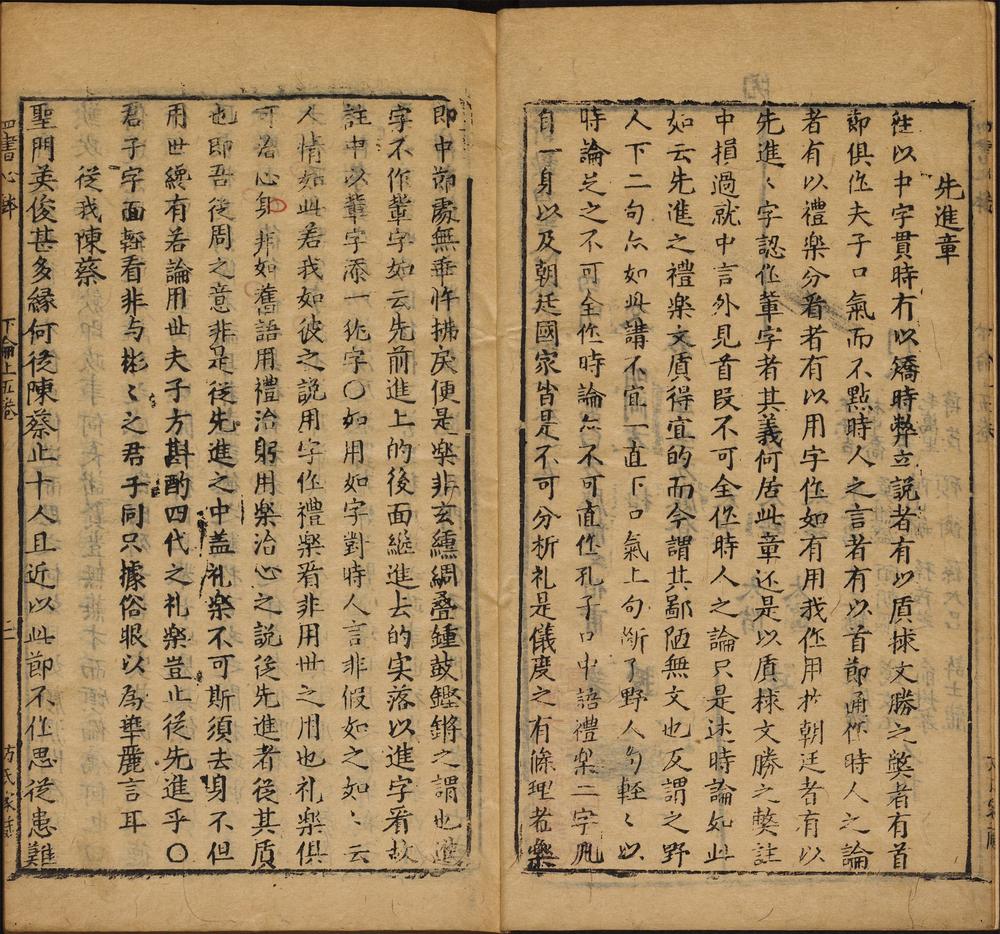 先進章
註以中字貫時冇以矯時弊立説者有以質捄文勝之獘者有首
節俱作夫子口氣而不㸃時人之言者有以首節通作時人之論
者有以禮樂分看者有以用字作如有用我作用扵朝廷者有以
先進〻字認作軰字者其義何居此章还是以質捄文勝之獘註
中損過就中言外見首叚不可全作時人之論只是述時論如此
如云先進之禮樂文質得宜的而今謂其鄙陋無文也反謂之野
人下二句亦如此講不宜一直下口氣上句斷了野人句輕〻以
時論足之不可全作時論亦不可直作孔子口中語禮樂二字凢
自一身以及朝廷國家皆是不可分析礼是儀度之有條理者樂
即中節處無乖忤拂戾便是樂非玄纁綢疊鍾鼓鏗鏘之謂也進
字不作軰字如云先前進上的後面繼進去的实落以進字看故
註中以軰字添一猶字〇如用如字對時人言非假如之如〻云
人情如此若我如彼之説用字作禮樂看非用世之用也礼樂俱
可君心身非如舊語用禮治躬用樂治心之説後先進者後其質
也即吾從周之意非是從先進之中盖礼樂不可斯須去身不但
用世纔有若論用世夫子方斟酌四代之礼樂豈止從先進乎〇
君子字面輕看非与彬〻之君子同只據俗眼以為華麗言耳
從我陳蔡
聖門英俊甚多縁何從陳蔡止十人且近以此節不作思從患難
四書心
下論上五卷
二
方氏家